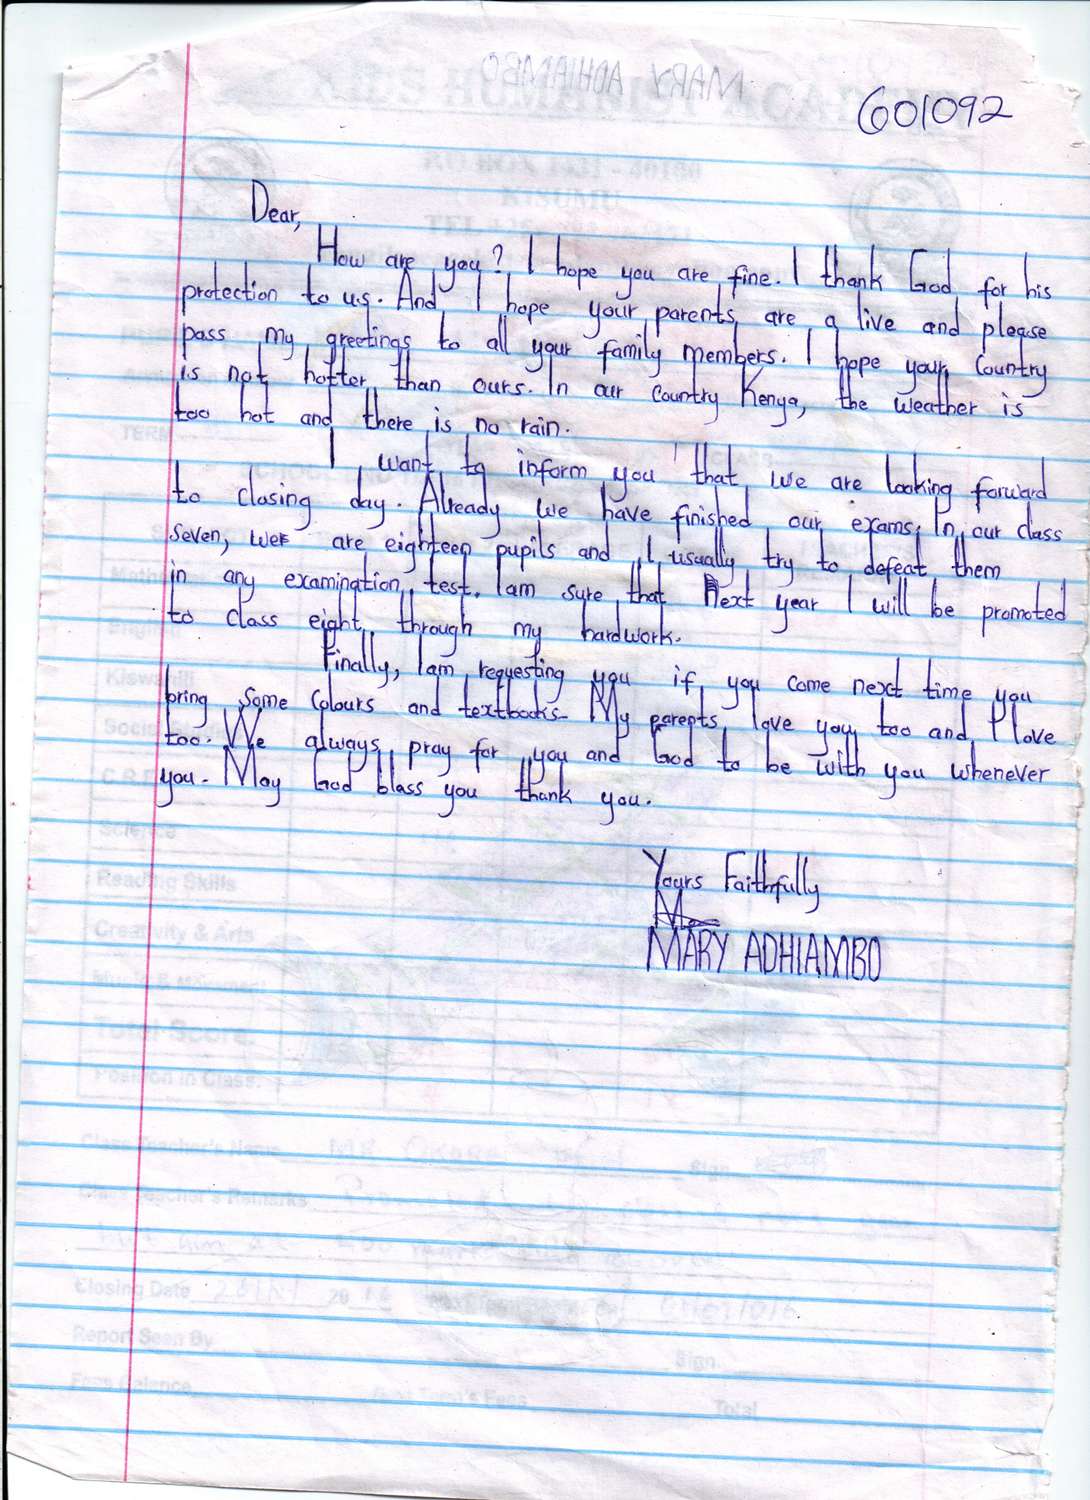 MARY ADHIAMBO
601092
KIDS HUMANITY ACADEMY
KISUMU
Dear,
How are you? I hope you are fine. I thank God for his
protection to us. And I hope your parents are a live and please
pass my greetings to all your family members. I hope your Country
is not hotter than ours. In our Country Kenya, the weather is
too hot and there is no rain.
I want to inform you that we are looking forward
to closing day. Already we have finished our exams. In our class
seven, wer are eighteen pupils and I usually try to defeat them
in any examination test. Iam sure that Next year I will be promoted
to class eight through my hardwork.
Finally, Iam requesting you if you come next time you
bring some Colours and textbooks. My parents love you too and I love
too. We always pray for you and God to be with you whenever
you. May God blass you thank you.
Yours Faithfully
MARY ADHIAMBO
Science
Reading Skills
Creativity & Arts
Total Score.
Position in Class.
Class Teacher's Name
Sign
Class Teacher's Remarks
Closing Date
Report Seen By
Sign
Fees Balance
Next Term's Fees
Total